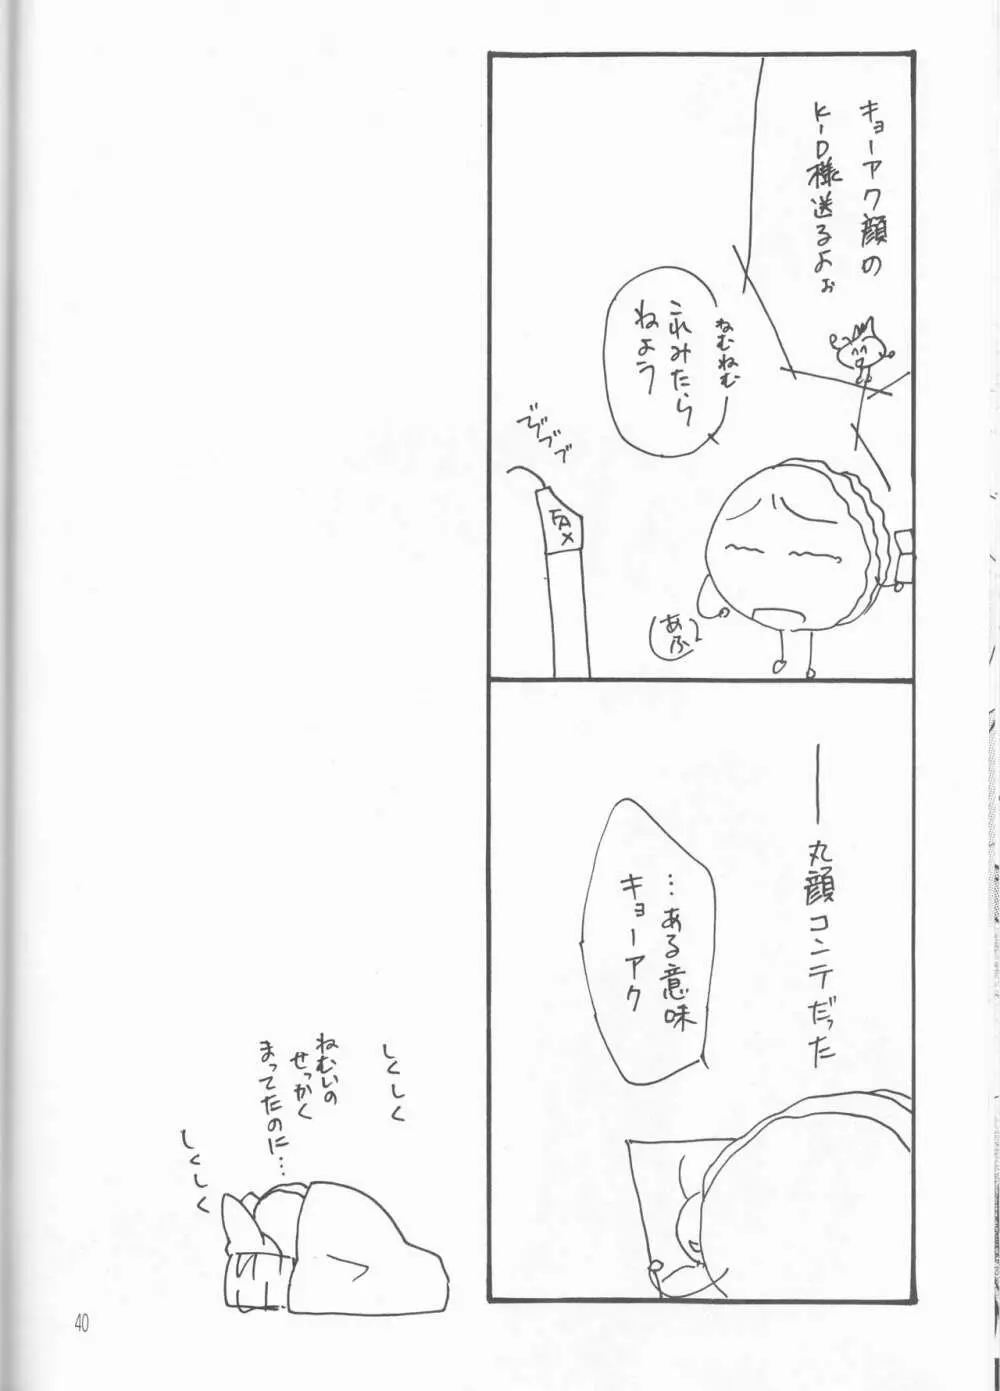 キョーアク顔の
K-D様送るよぉ
ねむねむ
これみたら
ねよう
でででで
FAX
あふ
丸顔コンテだった
…ある意味
キョーアク
しくしく
ねむいの
せっかく
まってたのに…
しくしく
40